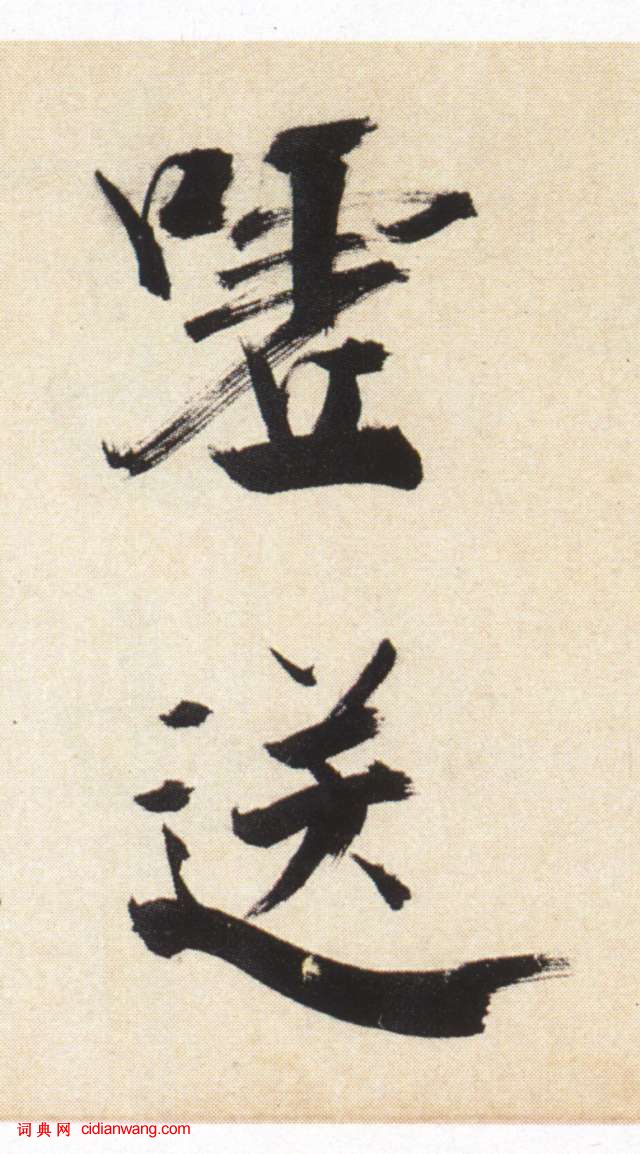 噓
送
词典网 cidianwang.com